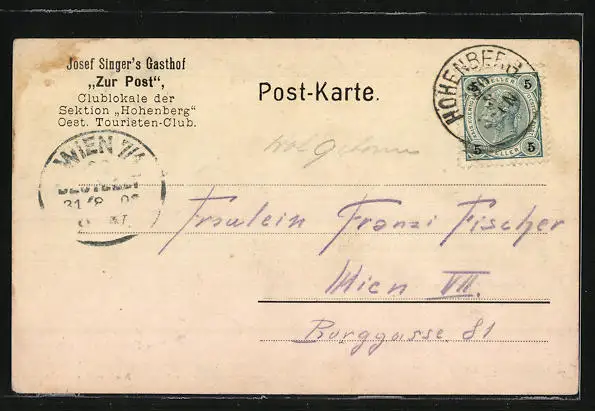 Josef Singer's Gasthof
„Zur Post",
Clublokale der
Sektion „Hohenberg"
Oest. Touristen-Club.
Post-Karte.
HOHENBERG
5 5
5 5
WIEN 7/1
BESTELLT
31/8
Fräulein Franzi Fischer
Wien VII.
Burggasse 81